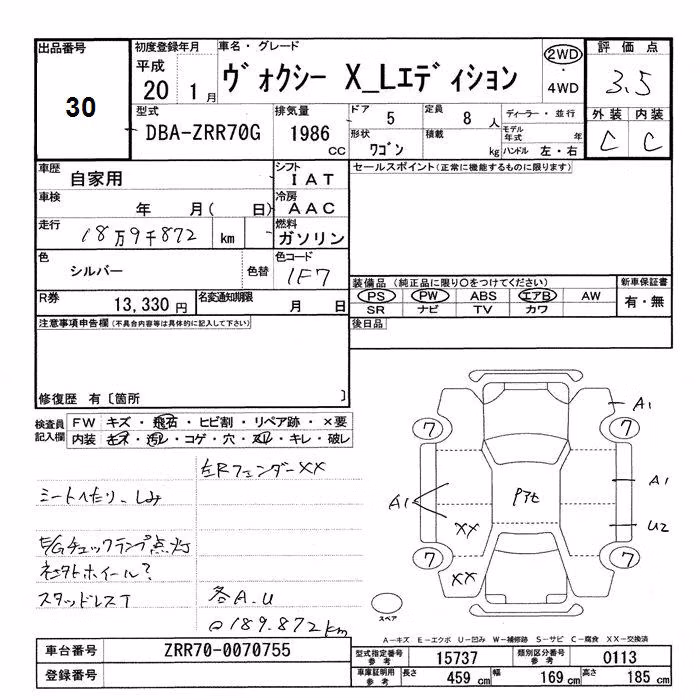 出品番号
30
初度登録年月
平成
20 1月
車名・グレード
ヴォクシー X_Lエディション
2WD
・
4WD
評価点
3.5
型式
DBA-ZRR70G
排気量
1986
CC
ドア
5
定員
8 人
形状
ワゴン
積載
kg
ディーラー・並行
モデル年式 年
ハンドル 左・右
外装 内装
C C
車歴
自家用
シフト
IAT
車検
年 月( 日)
冷房
AAC
走行
18万9千872 km
燃料
ガソリン
色
シルバー
色替
色コード
1F7
R券
13,330 円
名変通知期限
月 日
セールスポイント(正常に機能するものに限ります)
装備品 (純正品に限り〇をつけてください)
PS PW ABS エアB AW
SR ナビ TV カワ
新車保証書
有・無
後日品
注意事項申告欄(不具合内容等は具体的に記入して下さい)
修復歴 有〔箇所 〕
検査員記入欄
FW キズ・飛石・ヒビ割・リペア跡・×要
内装 キズ・汚レ・コゲ・穴・スレ・キレ・破レ
左Rフェンダー××
シートへたり、しみ
E/Gチェックランプ点灯
スタッドレスT
各A.U
189.872km
A1
7 7
A1
A1
××
U2
7 7
××
スペア
A-キズ E-エクボ U-凹み W-補修跡 S-サビ C-腐食 XX-交換済
車台番号
ZRR70-0070755
登録番号
型式指定番号 参考
15737
類別区分番号 参考
0113
車庫証明用 参考
長さ 459 cm 幅 169 cm 高さ 185 cm